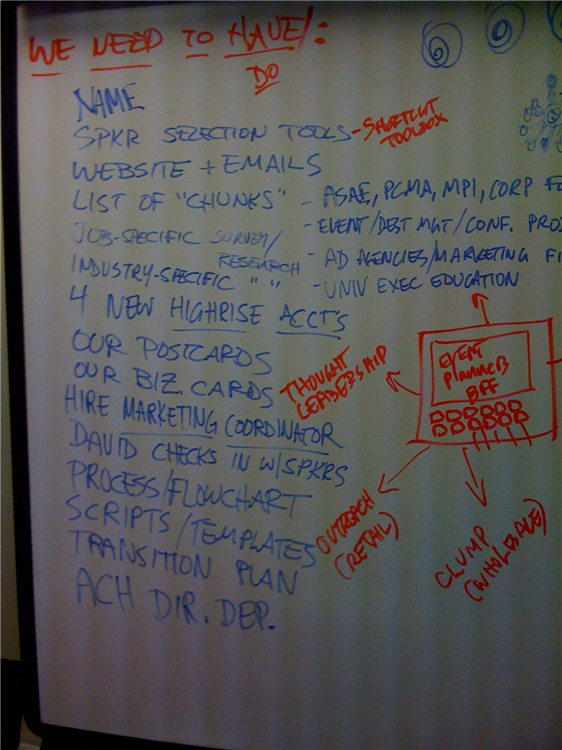 WE NEED TO HAVE/:
DO
NAME
SPKR SELECTION TOOLS - SPEAKER
TOOLBOX
WEBSITE + EMAILS
LIST OF "CHUNKS" - ASAE, PCMA, MPI, CORP
JOB-SPECIFIC SURVEY/ - EVENT/DEST MGT/CONF.
RESEARCH
INDUSTRY-SPECIFIC " " - AD AGENCIES/MARKETING
- UNIV EXEC EDUCATION
4 NEW HIGHRISE ACCT'S
OUR POSTCARDS
OUR BIZ. CARDS
HIRE MARKETING COORDINATOR
DAVID CHECKS IN W/SPKRS
PROCESS/FLOWCHART
SCRIPTS/TEMPLATES
TRANSITION PLAN
ACH DIR. DEP.
EVENT
PLANNERS
BFF
THOUGHT
LEADERSHIP
OUTREACH
(RETAIL)
CLUMP
(WHOLESALE)